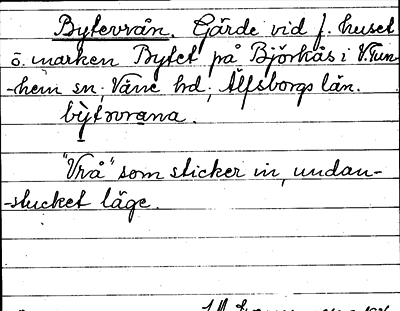 Bytevrån. Gärde vid f. huset
ö. marken Bytet på Björkås i V. Tun-
-hem sn, Väne hd, Älfsborgs län.
by̆tvrana.
"Vrå" som sticker in, undan-
-stucket läge.